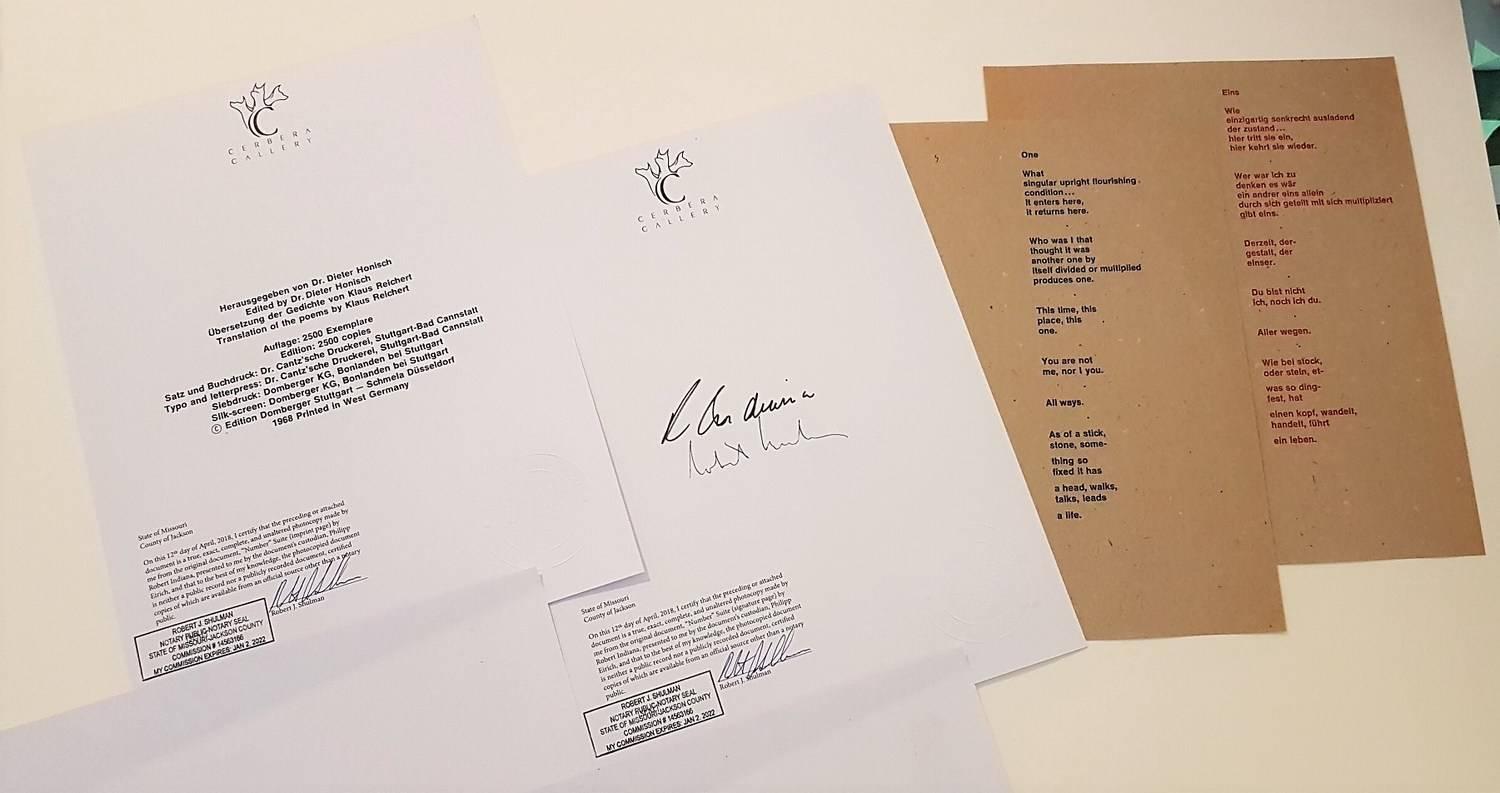 CERBERA
GALLERY
Herausgegeben von Dr. Dieter Honisch
Edited by Dr. Dieter Honisch
Übersetzung der Gedichte von Klaus Reichert
Translation of the poems by Klaus Reichert
Auflage: 2500 Exemplare
Edition: 2500 copies
Satz und Buchdruck: Dr. Cantz'sche Druckerei, Stuttgart-Bad Cannstatt
Typo and letterpress: Dr. Cantz'sche Druckerei, Stuttgart-Bad Cannstatt
Siebdruck: Domberger KG, Bonlanden bei Stuttgart
Silk-screen: Domberger KG, Bonlanden bei Stuttgart
© Edition Domberger Stuttgart – Schmela Düsseldorf
1968 Printed in West Germany
State of Missouri
County of Jackson
On this 12th day of April, 2018, I certify that the preceding or attached
document is a true, exact, complete, and unaltered photocopy made by
me from the original document, "Number" Suite (imprint page) by
Robert Indiana, presented to me by the document's custodian, Philipp
Eirich, and that to the best of my knowledge, the photocopied document
is neither a public record nor a publicly recorded document, certified
copies of which are available from an official source other than a notary
public.
Robert J. Shulman
ROBERT J. SHULMAN
NOTARY PUBLIC-NOTARY SEAL
STATE OF MISSOURI/JACKSON COUNTY
COMMISSION # 14563166
MY COMMISSION EXPIRES: JAN 2, 2022
CERBERA
GALLERY
State of Missouri
County of Jackson
On this 12th day of April, 2018, I certify that the preceding or attached
document is a true, exact, complete, and unaltered photocopy made by
me from the original document, "Number" Suite (signature page) by
Robert Indiana, presented to me by the document's custodian, Philipp
Eirich, and that to the best of my knowledge, the photocopied document
is neither a public record nor a publicly recorded document, certified
copies of which are available from an official source other than a notary
public.
Robert J. Shulman
ROBERT J. SHULMAN
NOTARY PUBLIC-NOTARY SEAL
STATE OF MISSOURI/JACKSON COUNTY
COMMISSION # 14563166
MY COMMISSION EXPIRES: JAN 2, 2022
One
What
singular upright flourishing
condition...
it enters here,
it returns here.
Who was I that
thought it was
another one by
itself divided or multiplied
produces one.
This time, this
place, this
one.
You are not
me, nor I you.
All ways.
As of a stick,
stone, some-
thing so
fixed it has
a head, walks,
talks, leads
a life.
Eins
Wie
einzigartig senkrecht ausladend
der zustand...
hier tritt sie ein,
hier kehrt sie wieder.
Wer war ich zu
denken es wär
ein andrer eins allein
durch sich geteilt mit sich multipliziert
gibt eins.
Derzeit, der-
gestalt, der
einser.
Du bist nicht
ich, noch ich du.
Aller wegen.
Wie bei stock,
oder stein, et-
was so ding-
fest, hat
einen kopf, wandelt,
handelt, führt
ein leben.